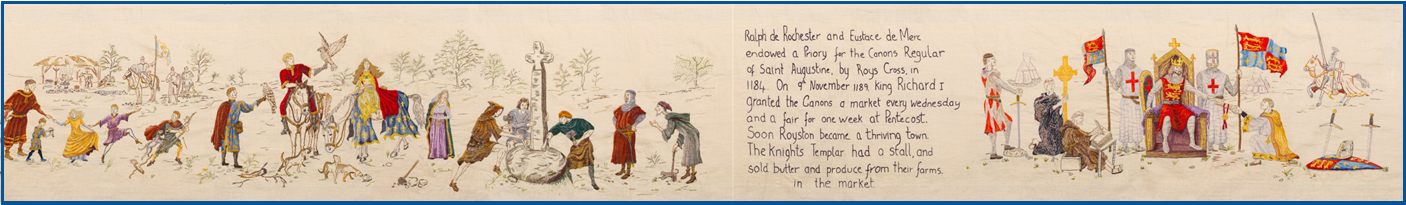 Ralph de Rochester and Eustace de Merc
endowed a Priory for the Canons Regular
of Saint Augustine, by Roys Cross, in
1184. On 9th November 1189 King Richard I
granted the Canons a market every Wednesday
and a fair for one week at Pentecost.
Soon Royston became a thriving town.
The Knights Templar had a stall, and
sold butter and produce from their farms.
in the market